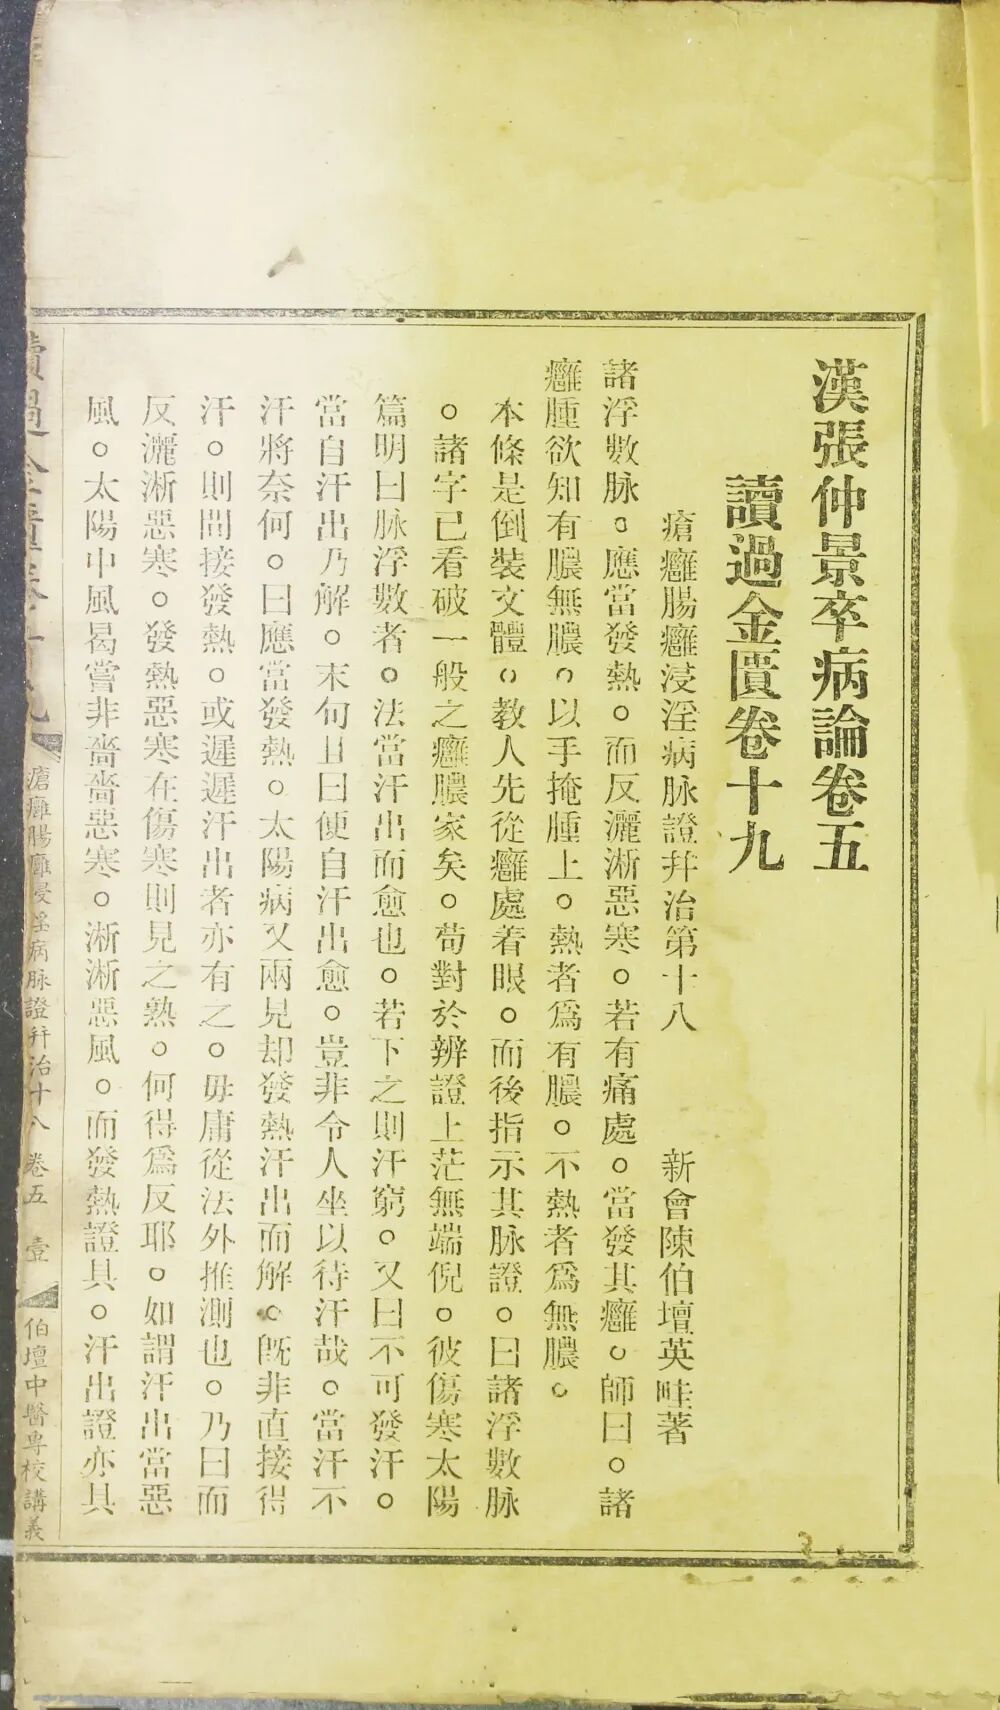 漢張仲景卒病論卷五
讀過金匱卷十九
瘡癰腸癰浸淫病脉證幷治第十八 新會陳伯壇英畦著
諸浮數脉。應當發熱。而反灑淅惡寒。若有痛處。當發其癰。師曰。諸
癰腫欲知有膿無膿。以手掩腫上。熱者爲有膿。不熱者爲無膿。
本條是倒裝文體。教人先從癰處着眼。而後指示其脉證。曰諸浮數脉
。諸字已看破一般之癰膿家矣。苟對於辨證上茫無端倪。彼傷寒太陽
篇明曰脉浮數者。法當汗出而愈也。若下之則汗窮。又曰不可發汗。
當自汗出乃解。末句且曰便自汗出愈。豈非令人坐以待汗哉。當汗不
汗將奈何。曰應當發熱。太陽病又兩見却發熱汗出而解。旣非直接得
汗。則間接發熱。或遲遲汗出者亦有之。毋庸從法外推測也。乃曰而
反灑淅惡寒。發熱惡寒在傷寒則見之熟。何得爲反耶。如謂汗出當惡
風。太陽中風曷嘗非嗇嗇惡寒。淅淅惡風。而發熱證具。汗出證亦具
讀過金匱卷十九 瘡癰腸癰浸淫病脉證幷治十八 卷五 壹 伯壇中醫專校講義